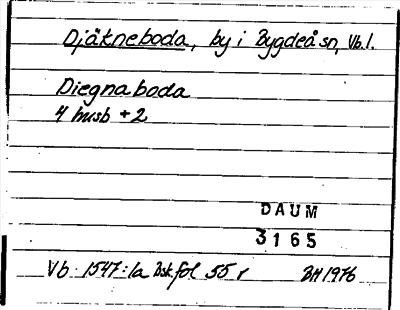 Djäkneboda, by i Bygdeå sn, Vb.l.
Diegnaboda
4 husb + 2
DAUM
3165
Vb 1547:1a Bsk fol 55 r BH 1976